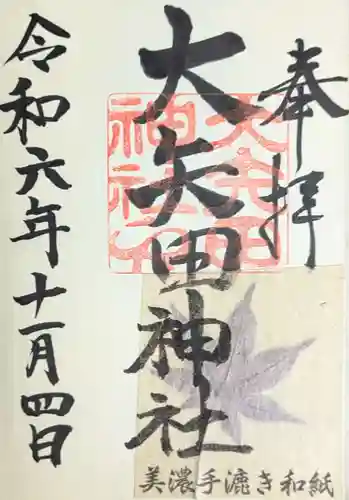 奉拝
大矢田神社
令和六年十一月四日
美濃手漉き和紙